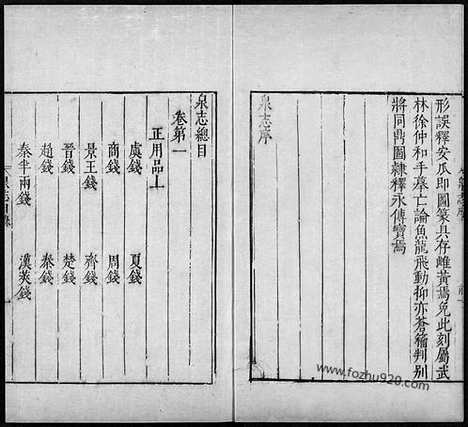 形誤釋安瓜即圖篆具存雌黃焉免此刻屬武
林徐仲和手摹亡論魚龍飛動抑亦蒼籀判別
將同鼎圖隸釋永傳寶焉
泉志序
泉志總目
卷第一
正用品上
虞錢 夏錢
商錢 周錢
景王錢 齊錢
晉錢 楚錢
趙錢 秦錢
秦半兩錢 漢莢錢
www.fozhu920.com